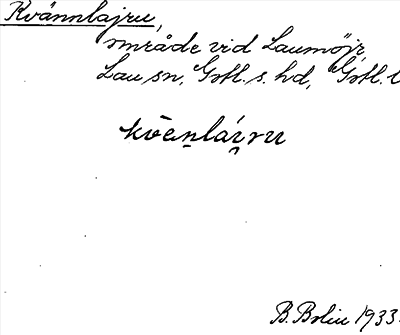 Kvännlajru,
område vid Laumöjr,
Lau sn, Gotl. s. hd, Gotl. l
kv̄enlái̯ru
B. Bolin 1933.